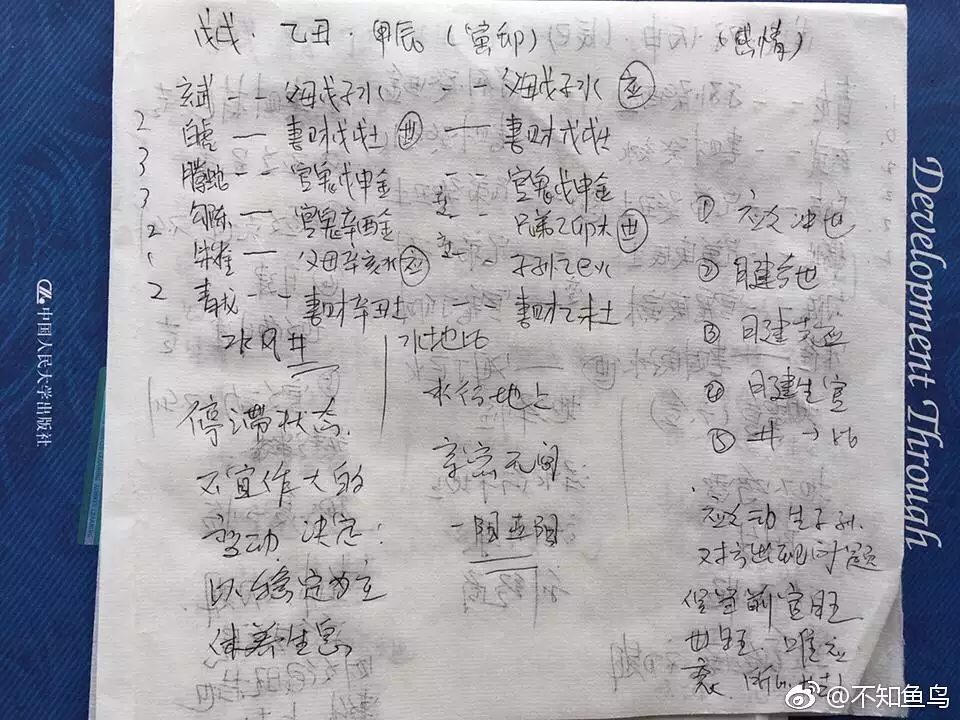 戊戌·乙丑·甲辰(寅卯) (感情)
玄武 -- 父母戊子水 -- 父母戊子水 应
2 白虎 — 妻财戊戌土 世 — 妻财戊戌土
3 腾蛇 -- 官鬼戊申金 -- 官鬼戊申金
3 勾陈 — 官鬼辛酉金 -- 兄弟乙卯木 世
2 朱雀 — 父母辛亥水 应 -- 子孙乙巳火
2 青龙 -- 妻财辛丑土 妻财乙未土
水风井
水地比
停滞状态
不宜作大的
变动 决定:
以稳定为主
休养生息
水行地上
亲密无间
① 应爻冲世
② 日建合世
③ 日建克应
④ 日建生官
⑤ 井→比
应爻动生子孙.
对方出现问题
世旺. 唯应
衰.
中国人民大学出版社
Development Through
@不知鱼鸟